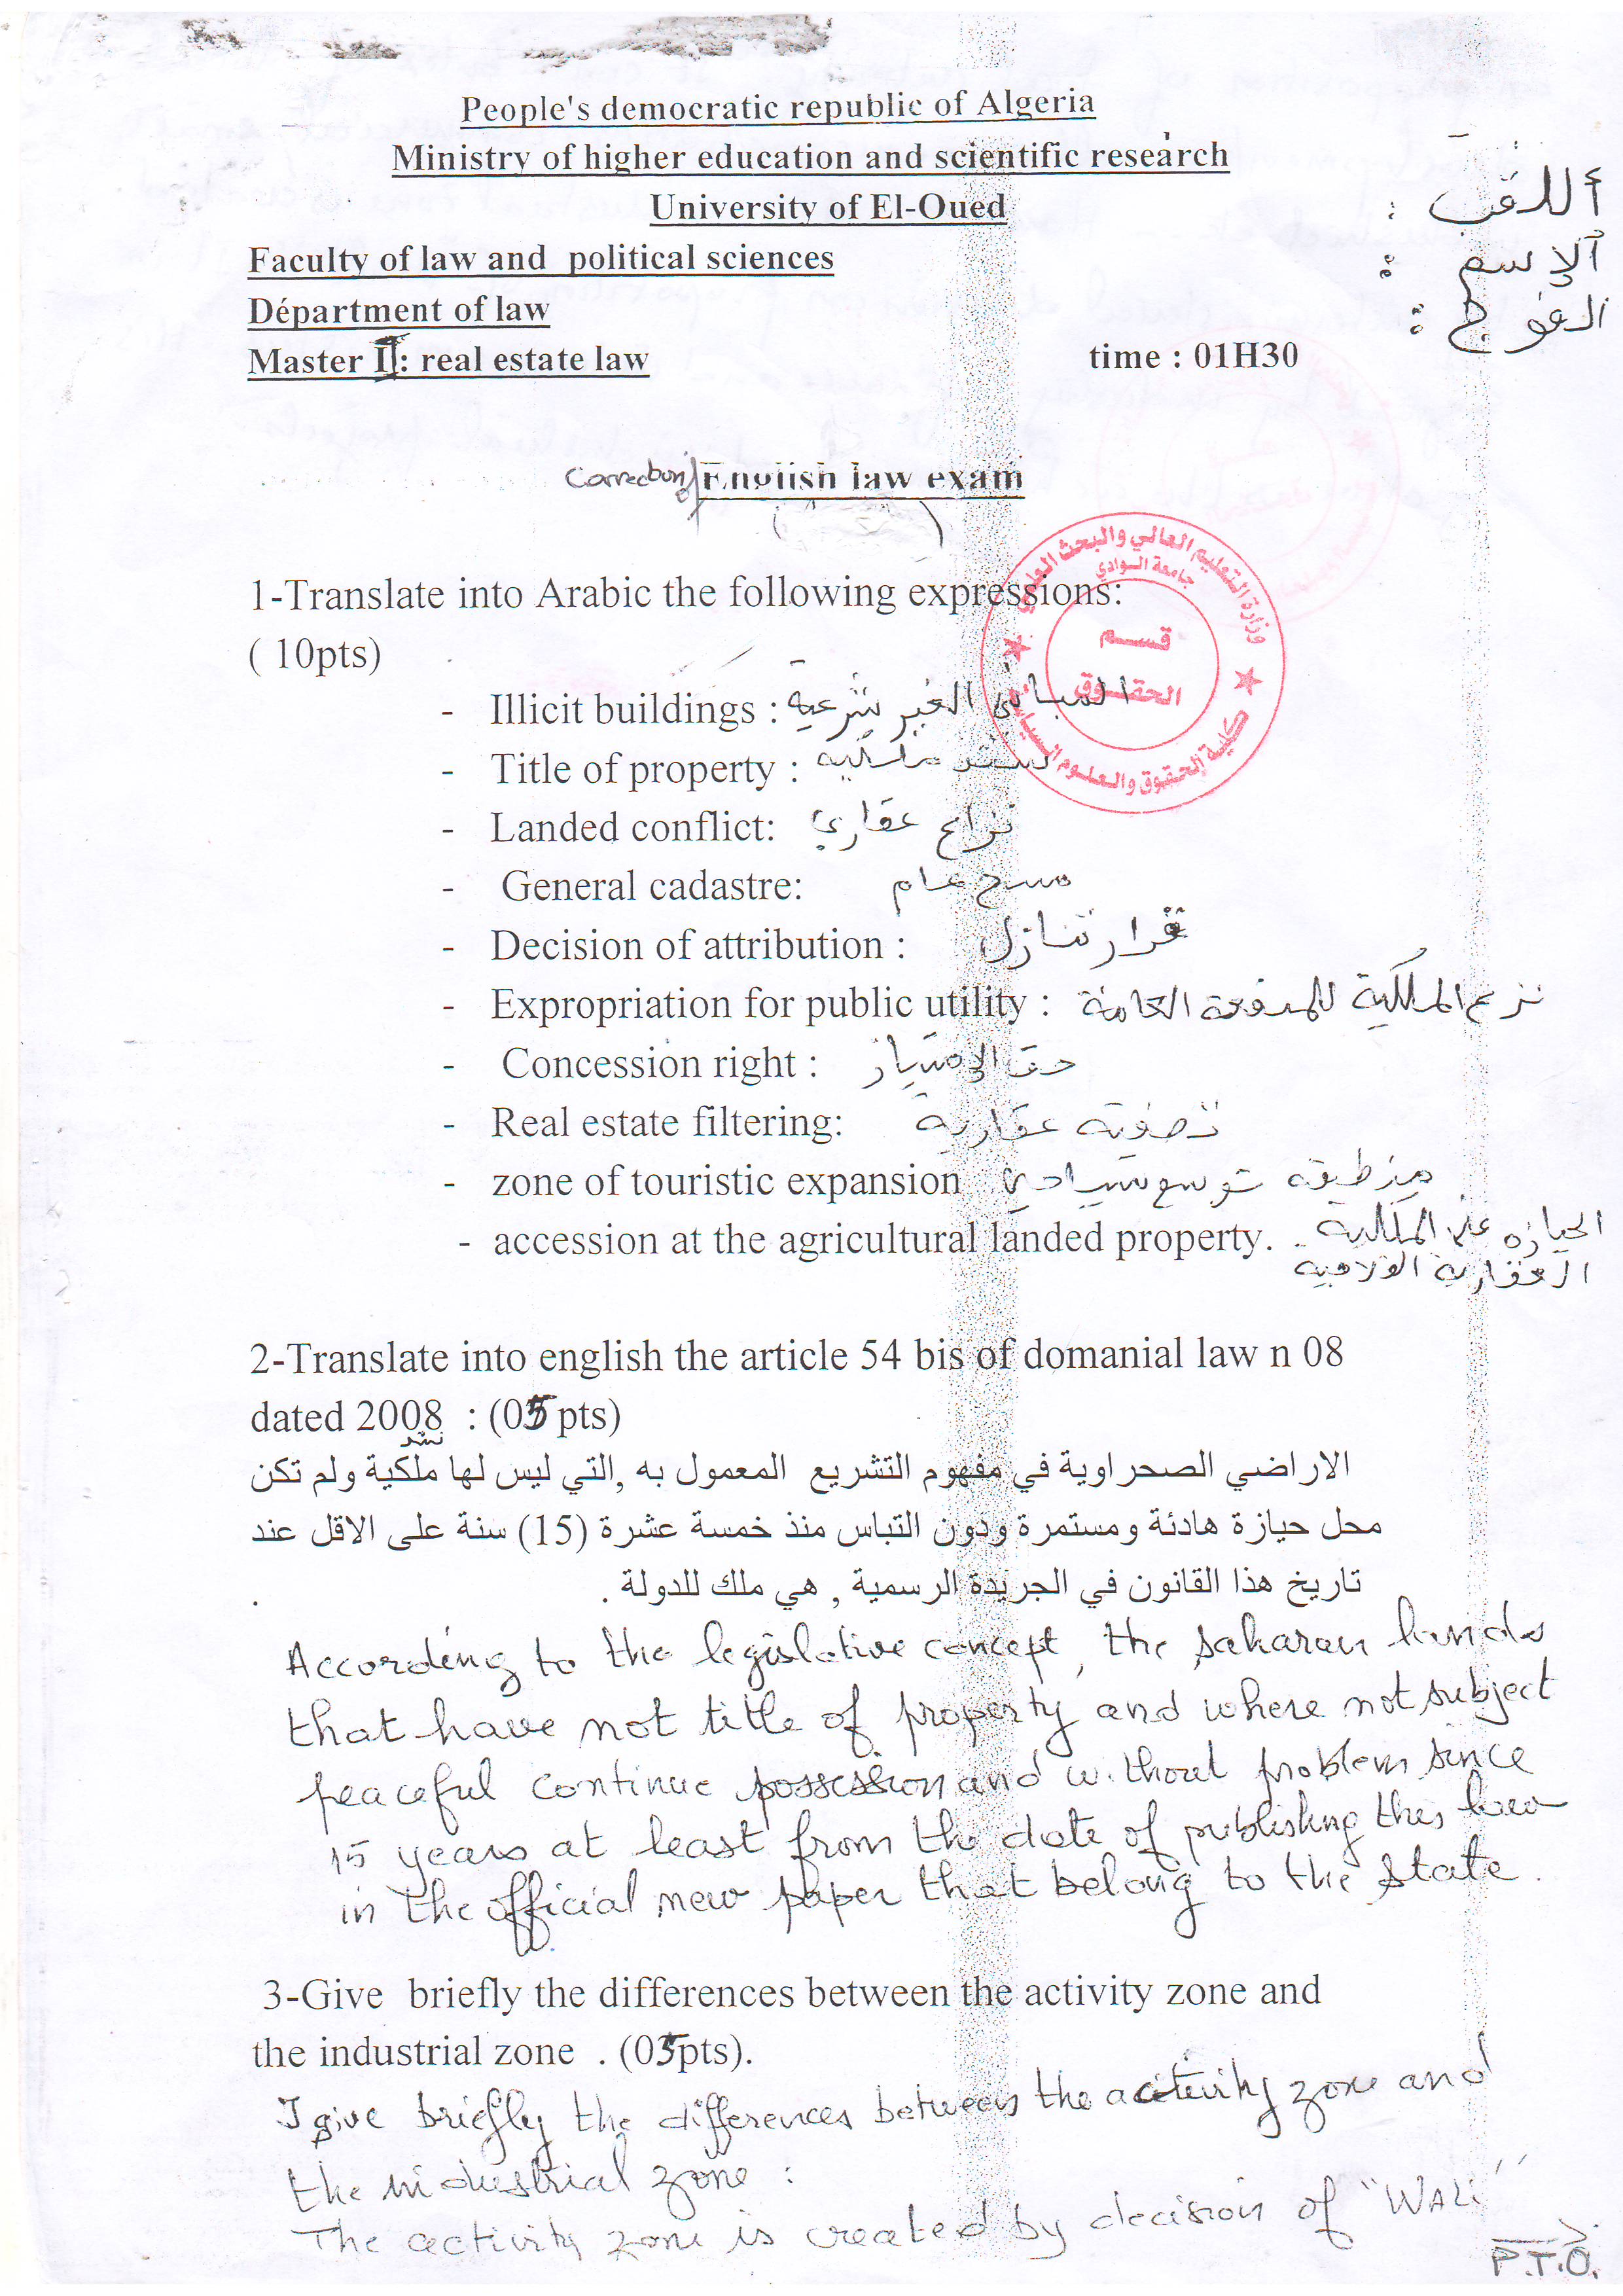 People's democratic republic of Algeria
Ministry of higher education and scientific research
University of El-Oued
أللقب :
الإسم :
الفوج :
Faculty of law and political sciences
Départment of law
Master II: real estate law
time : 01H30
Correction/ English law exam
وزارة التعليم العالي والبحث العلمي
جامعة الوادي
قسم
الحقوق
كلية الحقوق والعلوم السياسية
1-Translate into Arabic the following expressions:
( 10pts)
- Illicit buildings : المباني الغير شرعية
- Title of property : سند ملكية
- Landed conflict: نزاع عقاري
- General cadastre: مسح عام
- Decision of attribution : قرار تنازل
- Expropriation for public utility : نزع الملكية للمنفعة العامة
- Concession right : حق الإمتياز
- Real estate filtering: تصفية عقارية
- zone of touristic expansion منطقة توسع سياحي
- accession at the agricultural landed property. الحيازة على الملكية
العقارية الفلاحية
2-Translate into english the article 54 bis of domanial law n 08
dated 2008 : (05 pts)
الاراضي الصحراوية في مفهوم التشريع المعمول به ,التي ليس لها ملكية ولم تكن
محل حيازة هادئة ومستمرة ودون التباس منذ خمسة عشرة (15) سنة على الاقل عند
نشر
تاريخ هذا القانون في الجريدة الرسمية , هي ملك للدولة .
According to the legislative concept, the saharan lands
that have not title of property and where not subject
peaceful continue possession and without problem since
15 years at least from the date of publishing this law
in the official new paper that belong to the state.
3-Give briefly the differences between the activity zone and
the industrial zone . (05pts).
I give briefly the differences between the activity zone and
the industrial zone :
The activity zone is created by decision of "WALI"
P.T.O.